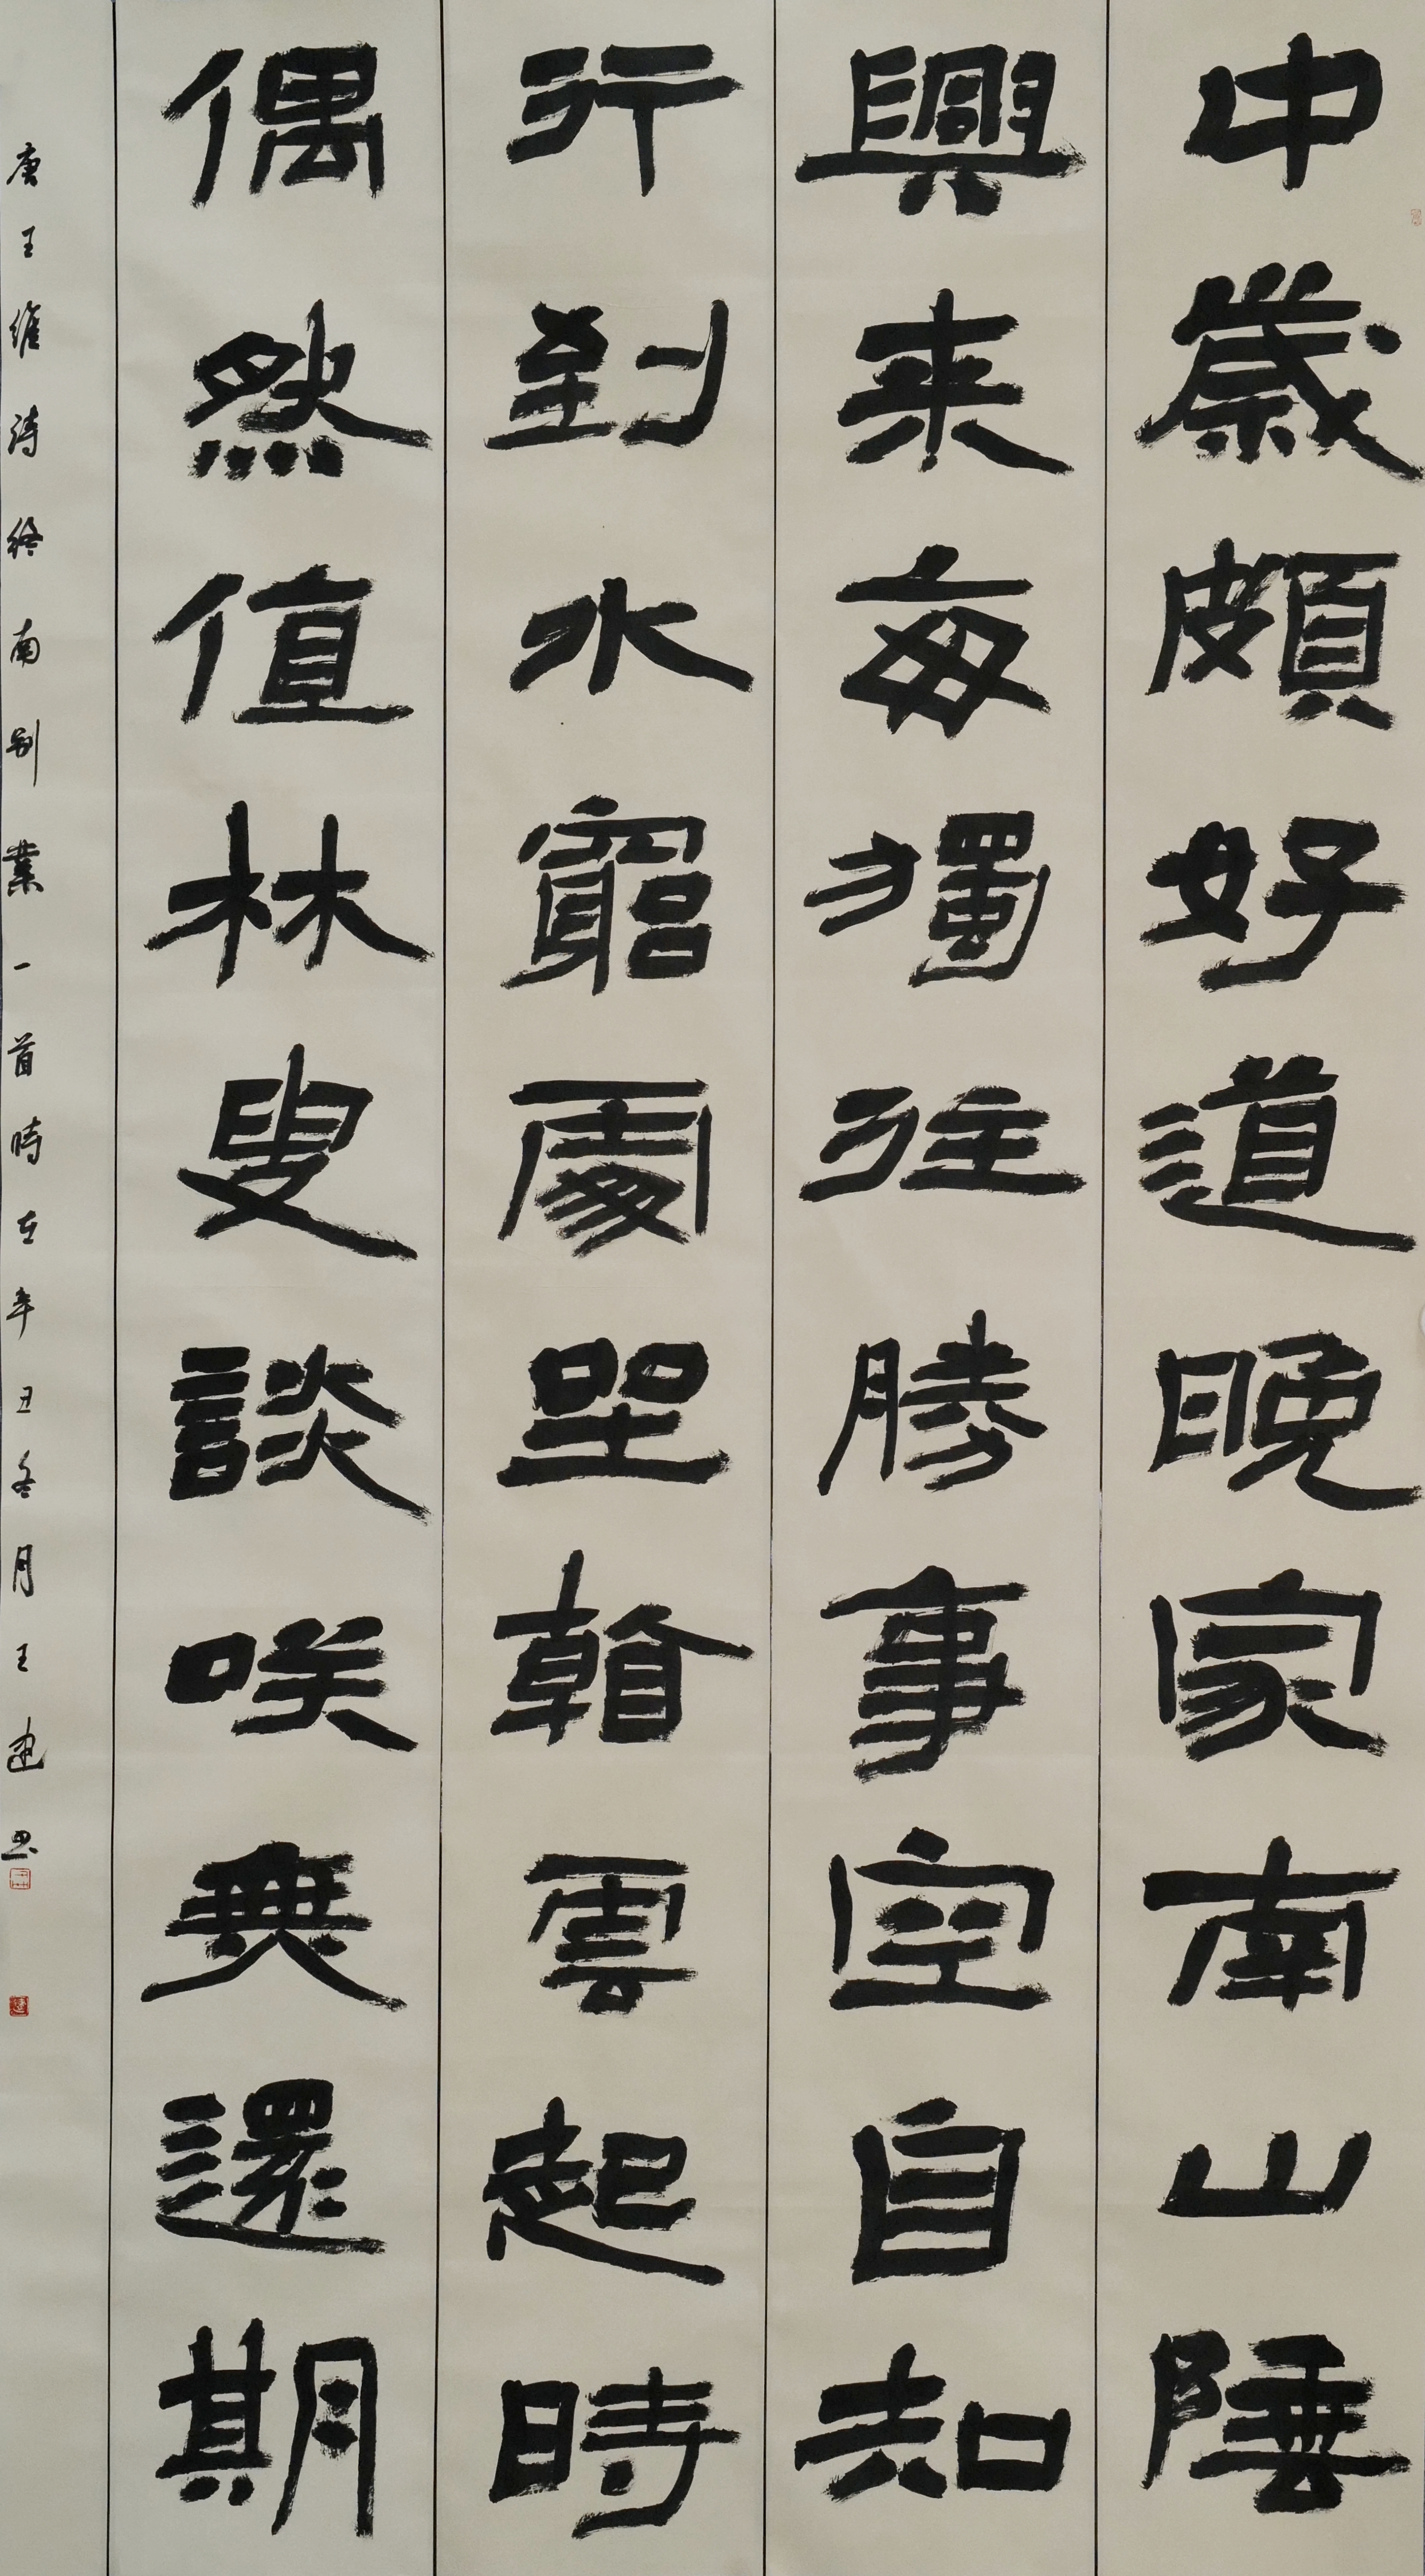 中歲頗好道晚家南山陲
興来每獨往勝事空自知
行到水窮處坐看雲起時
偶然值林叟談咲無還期
唐王維詩終南别業一首時在辛丑冬月王建書